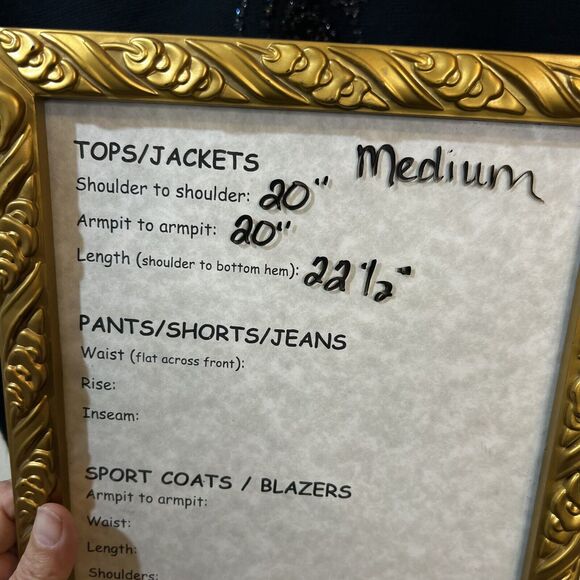 TOPS/JACKETS Medium
Shoulder to shoulder: 20"
Armpit to armpit: 20"
Length (shoulder to bottom hem): 22 1/2"
PANTS/SHORTS/JEANS
Waist (flat across front):
Rise:
Inseam:
SPORT COATS / BLAZERS
Armpit to armpit:
Waist:
Length:
Shoulders: